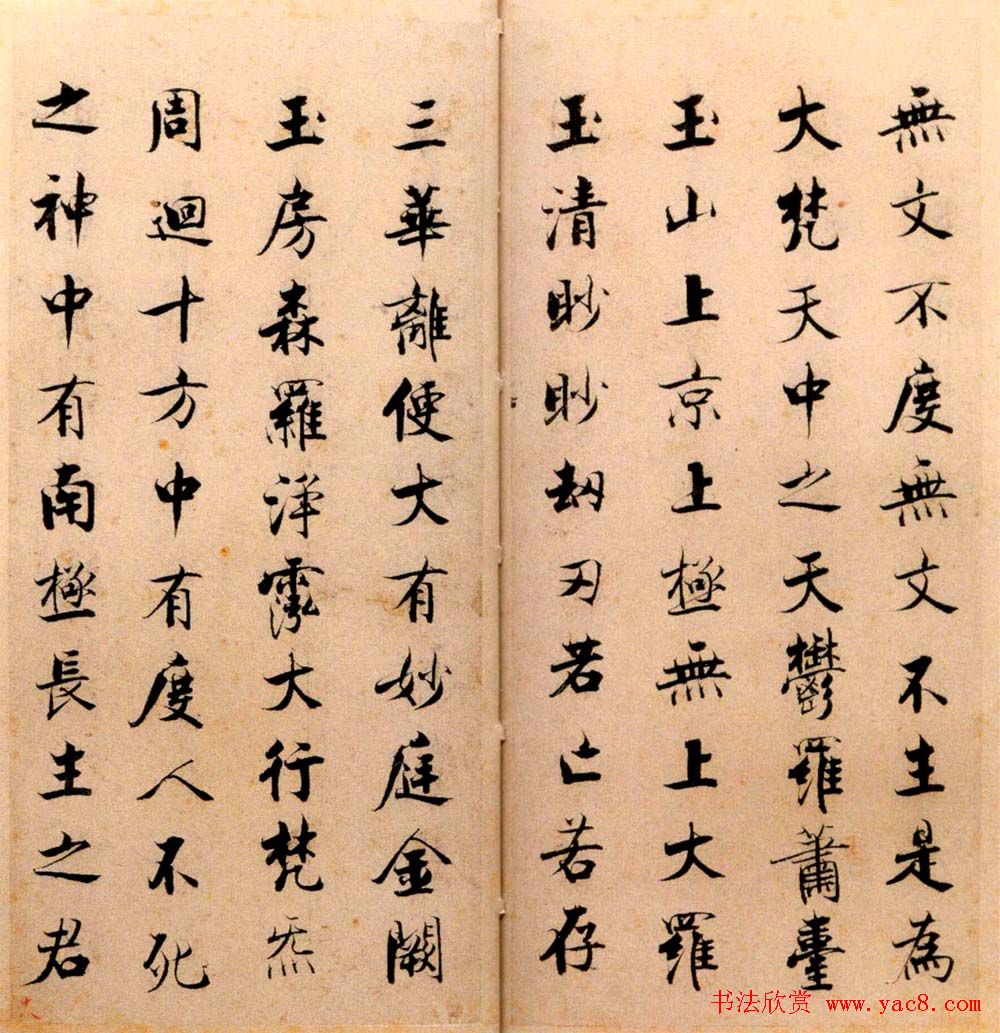 無文不度無文不生是為
大梵天中之天鬱羅蕭臺
玉山上京上極無上大羅
玉清眇眇劫刃若亡若存
三華離便大有妙庭金闕
玉房森羅淨霐大行梵炁
周迴十方中有度人不死
之神中有南極長生之君
书法欣赏 www.yac8.com